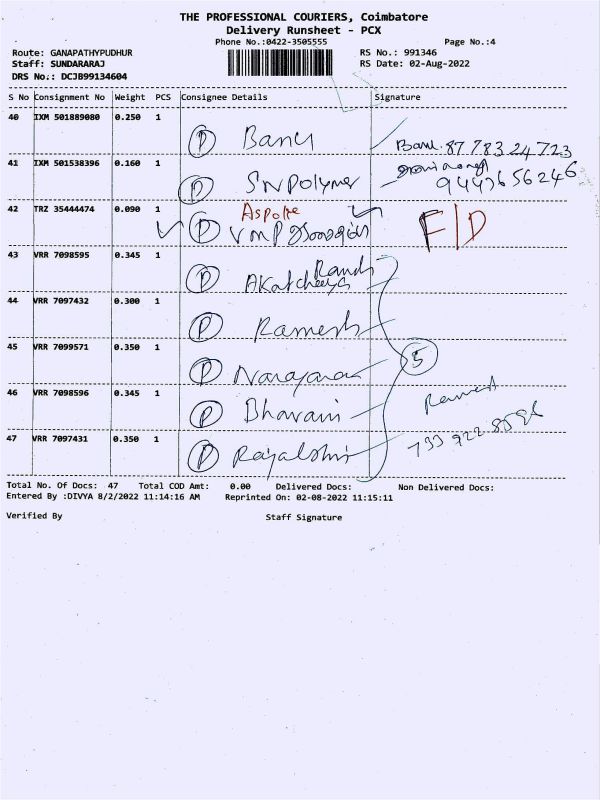 THE PROFESSIONAL COURIERS, Coimbatore
Delivery Runsheet - PCX
Phone No.:0422-3505555 Page No.:4
Route: GANAPATHYPUDHUR RS No.: 991346
Staff: SUNDARARAJ RS Date: 02-Aug-2022
DRS No.: DCJB99134604
S No Consignment No Weight PCS Consignee Details Signature
40 IXM 501889080 0.250 1
P Banu Banu 87 783 24 723
41 IXM 501538396 0.160 1
P SNPolymer 9443656246
42 TRZ 35444474 0.090 1 Aspoke
P VMP F/D
43 VRR 7098595 0.345 1
P Akatcheeya
44 VRR 7097432 0.300 1
P Ramesh
5
45 VRR 7099571 0.350 1
P Narayanan
46 VRR 7098596 0.345 1
P Bharani Ramesh
47 VRR 7097431 0.350 1
P Rajalshmi
Total No. Of Docs: 47 Total COD Amt: 0.00 Delivered Docs: Non Delivered Docs:
Entered By :DIVYA 8/2/2022 11:14:16 AM Reprinted On: 02-08-2022 11:15:11
Verified By Staff Signature